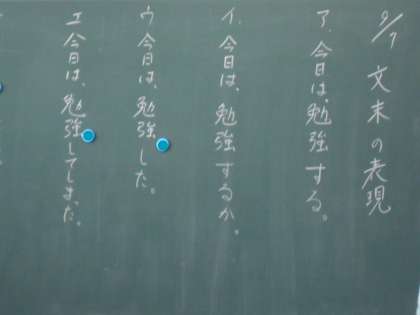 9/7 文末の表現
ア.今日は、勉強する。
イ.今日は、勉強するか。
ウ 今日は、勉強した。
エ 今日は、勉強してしまった。